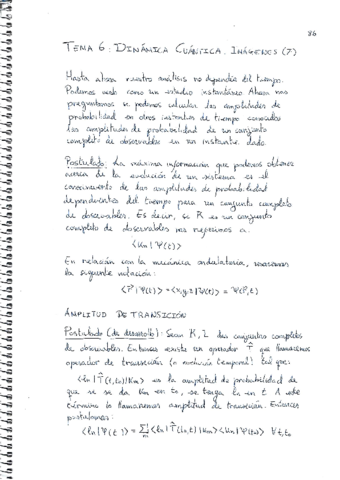 86
TEMA 6: DINÁMICA CUÁNTICA. IMÁGENES (7)
Hasta ahora nuestro análisis no dependía del tiempo.
Podemos verlo como un estudio instantáneo. Ahora nos
preguntamos si podemos calcular las amplitudes de
probabilidad en otros instantes de tiempo conocidas
las amplitudes de probabilidad de un conjunto
completo de observables en un instante dado.
Postulado: La máxima información que podemos obtener
acerca de la evolución de un sistema es el
conocimiento de las amplitudes de probabilidad
dependientes del tiempo para un conjunto completo
de observables. Es decir, si K es un conjunto
completo de observables nos referimos a:
<Km|Ψ(t)>
En relación con la mecánica ondulatoria, usaremos
la siguiente notación:
<r⃗|Ψ(t)> = <x,y,z|Ψ(t)> = Ψ(r⃗,t)
AMPLITUD DE TRANSICIÓN
Postulado (de desarrollo): Sean K, L dos conjuntos completos
de observables. Entonces existe un operador T̂ que llamaremos
operador de transición (o evolución temporal) tal que:
<ln|T̂(t,t₀)|Km> es la amplitud de probabilidad de
que si se da Km en t₀, se tenga ln en t. A este
término lo llamaremos amplitud de transición. Entonces
postulamos:
<ln|Ψ(t)> = Σ <ln|T̂(t,t₀)|Km><Km|Ψ(t₀)> ∀t,t₀